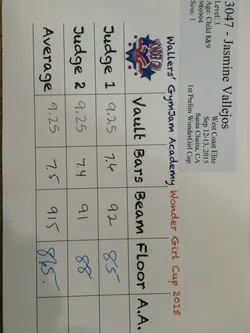 3047 - Jasmine Vallejos
Level: 3
Age: Child 8&9
Sess: 1
West Coast Elite
Sep 12-13, 2015
Santa Clarita, CA
1st Prelim WonderGirl Cup
Wallers' GymJam Academy Wonder Girl Cup 2015
Vault Bars Beam Floor A.A.
Judge 1 9.25 7.4 92 85
Judge 2 9.25 7.4 91 88
Average 9.25 7.5 915 865.